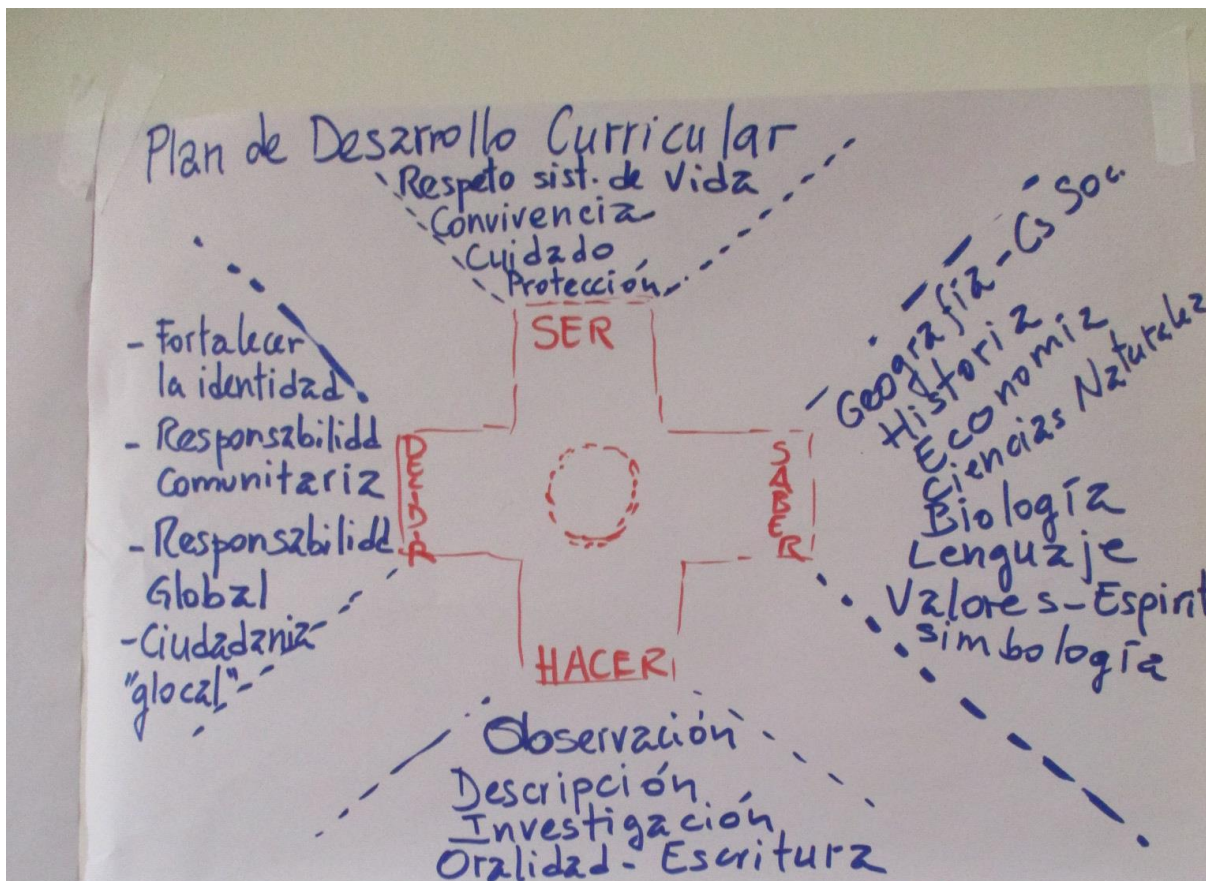 Plan de Desarrollo Curricular
Respeto sist. de Vida
Convivencia
Cuidado
Protección
SER
- Fortalecer
la identidad
- Responsabilidd
Comunitaria
- Responsabilidd
Global
- Ciudadania
"glocal"
DECIDIR
SABER
Geografía - Cs Soc.
Historia
Economia
Ciencias Naturales
Biología
Lenguaje
Valores - Espirit
simbología
HACER
Observación
Descripción
Investigación
Oralidad - Escritura